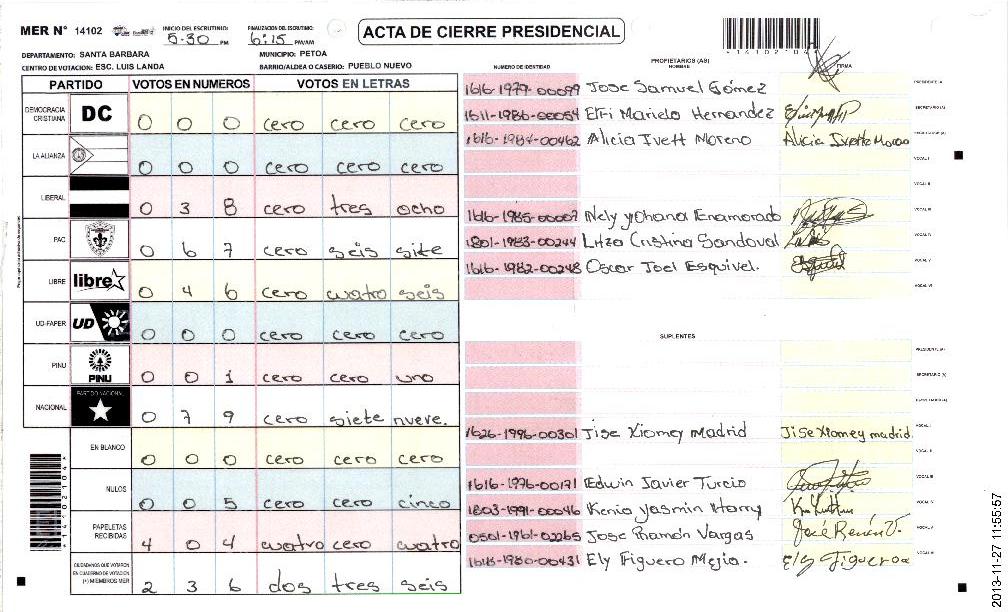 MER N° 14102 INICIO DEL ESCRUTINIO: 5:30 PM FINALIZACION DEL ESCRUTINIO: 6:15 PM/AM ACTA DE CIERRE PRESIDENCIAL
DEPARTAMENTO: SANTA BARBARA MUNICIPIO: PETOA
CENTRO DE VOTACION: ESC. LUIS LANDA BARRIO/ALDEA O CASERIO: PUEBLO NUEVO
PARTIDO VOTOS EN NUMEROS VOTOS EN LETRAS
DEMOCRACIA CRISTIANA DC 0 0 0 cero cero cero
LA ALIANZA 0 0 0 cero cero cero
LIBERAL 0 3 8 cero tres ocho
PAC 0 6 7 cero seis site
LIBRE libre 0 4 6 cero cuatro seis
UD-FAPER UD 0 0 0 cero cero cero
PINU PINU 0 0 1 cero cero uno
NACIONAL PARTIDO NACIONAL 0 7 9 cero siete nueve.
EN BLANCO 0 0 0 cero cero cero
NULOS 0 0 5 cero cero cinco
PAPELETAS RECIBIDAS 4 0 4 cuatro cero cuatro
CIUDADANOS QUE VOTARON EN CUADERNO DE VOTACION (+) MIEMBROS MER 2 3 6 dos tres seis
*14102104*
NUMERO DE IDENTIDAD PROPIETARIOS (AS) NOMBRE FIRMA
1616-1979-00099 Jose Samuel Gómez PRESIDENTE/A
1611-1986-00054 Elfi Mariela Hernandez SECRETARIO (A)
1616-1987-00462 Alicia Ivett Moreno Alicia Ivette Moreno
VOCAL I
VOCAL II
1616-1985-00007 Nely yohana Enamorado VOCAL III
1801-1983-00244 Litza Cristina Sandoval VOCAL IV
1616-1982-00248 Oscar Joel Esquivel. VOCAL V
VOCAL VI
SUPLENTES
PRESIDENTE (A)
SECRETARIO (A)
1626-1996-00301 Jise Xiomey Madrid Jise Xiomey madrid. VOCAL I
VOCAL II
1616-1976-00171 Edwin Javier Turcio VOCAL III
1803-1991-00046 Kenia Yasmin Harry VOCAL IV
0501-1961-02265 Jose Ramón Vargas VOCAL V
1618-1980-00431 Ely Figuero Mejia. Ely Figueroa VOCAL VI
*14102104*
2013-11-27 11:55:57